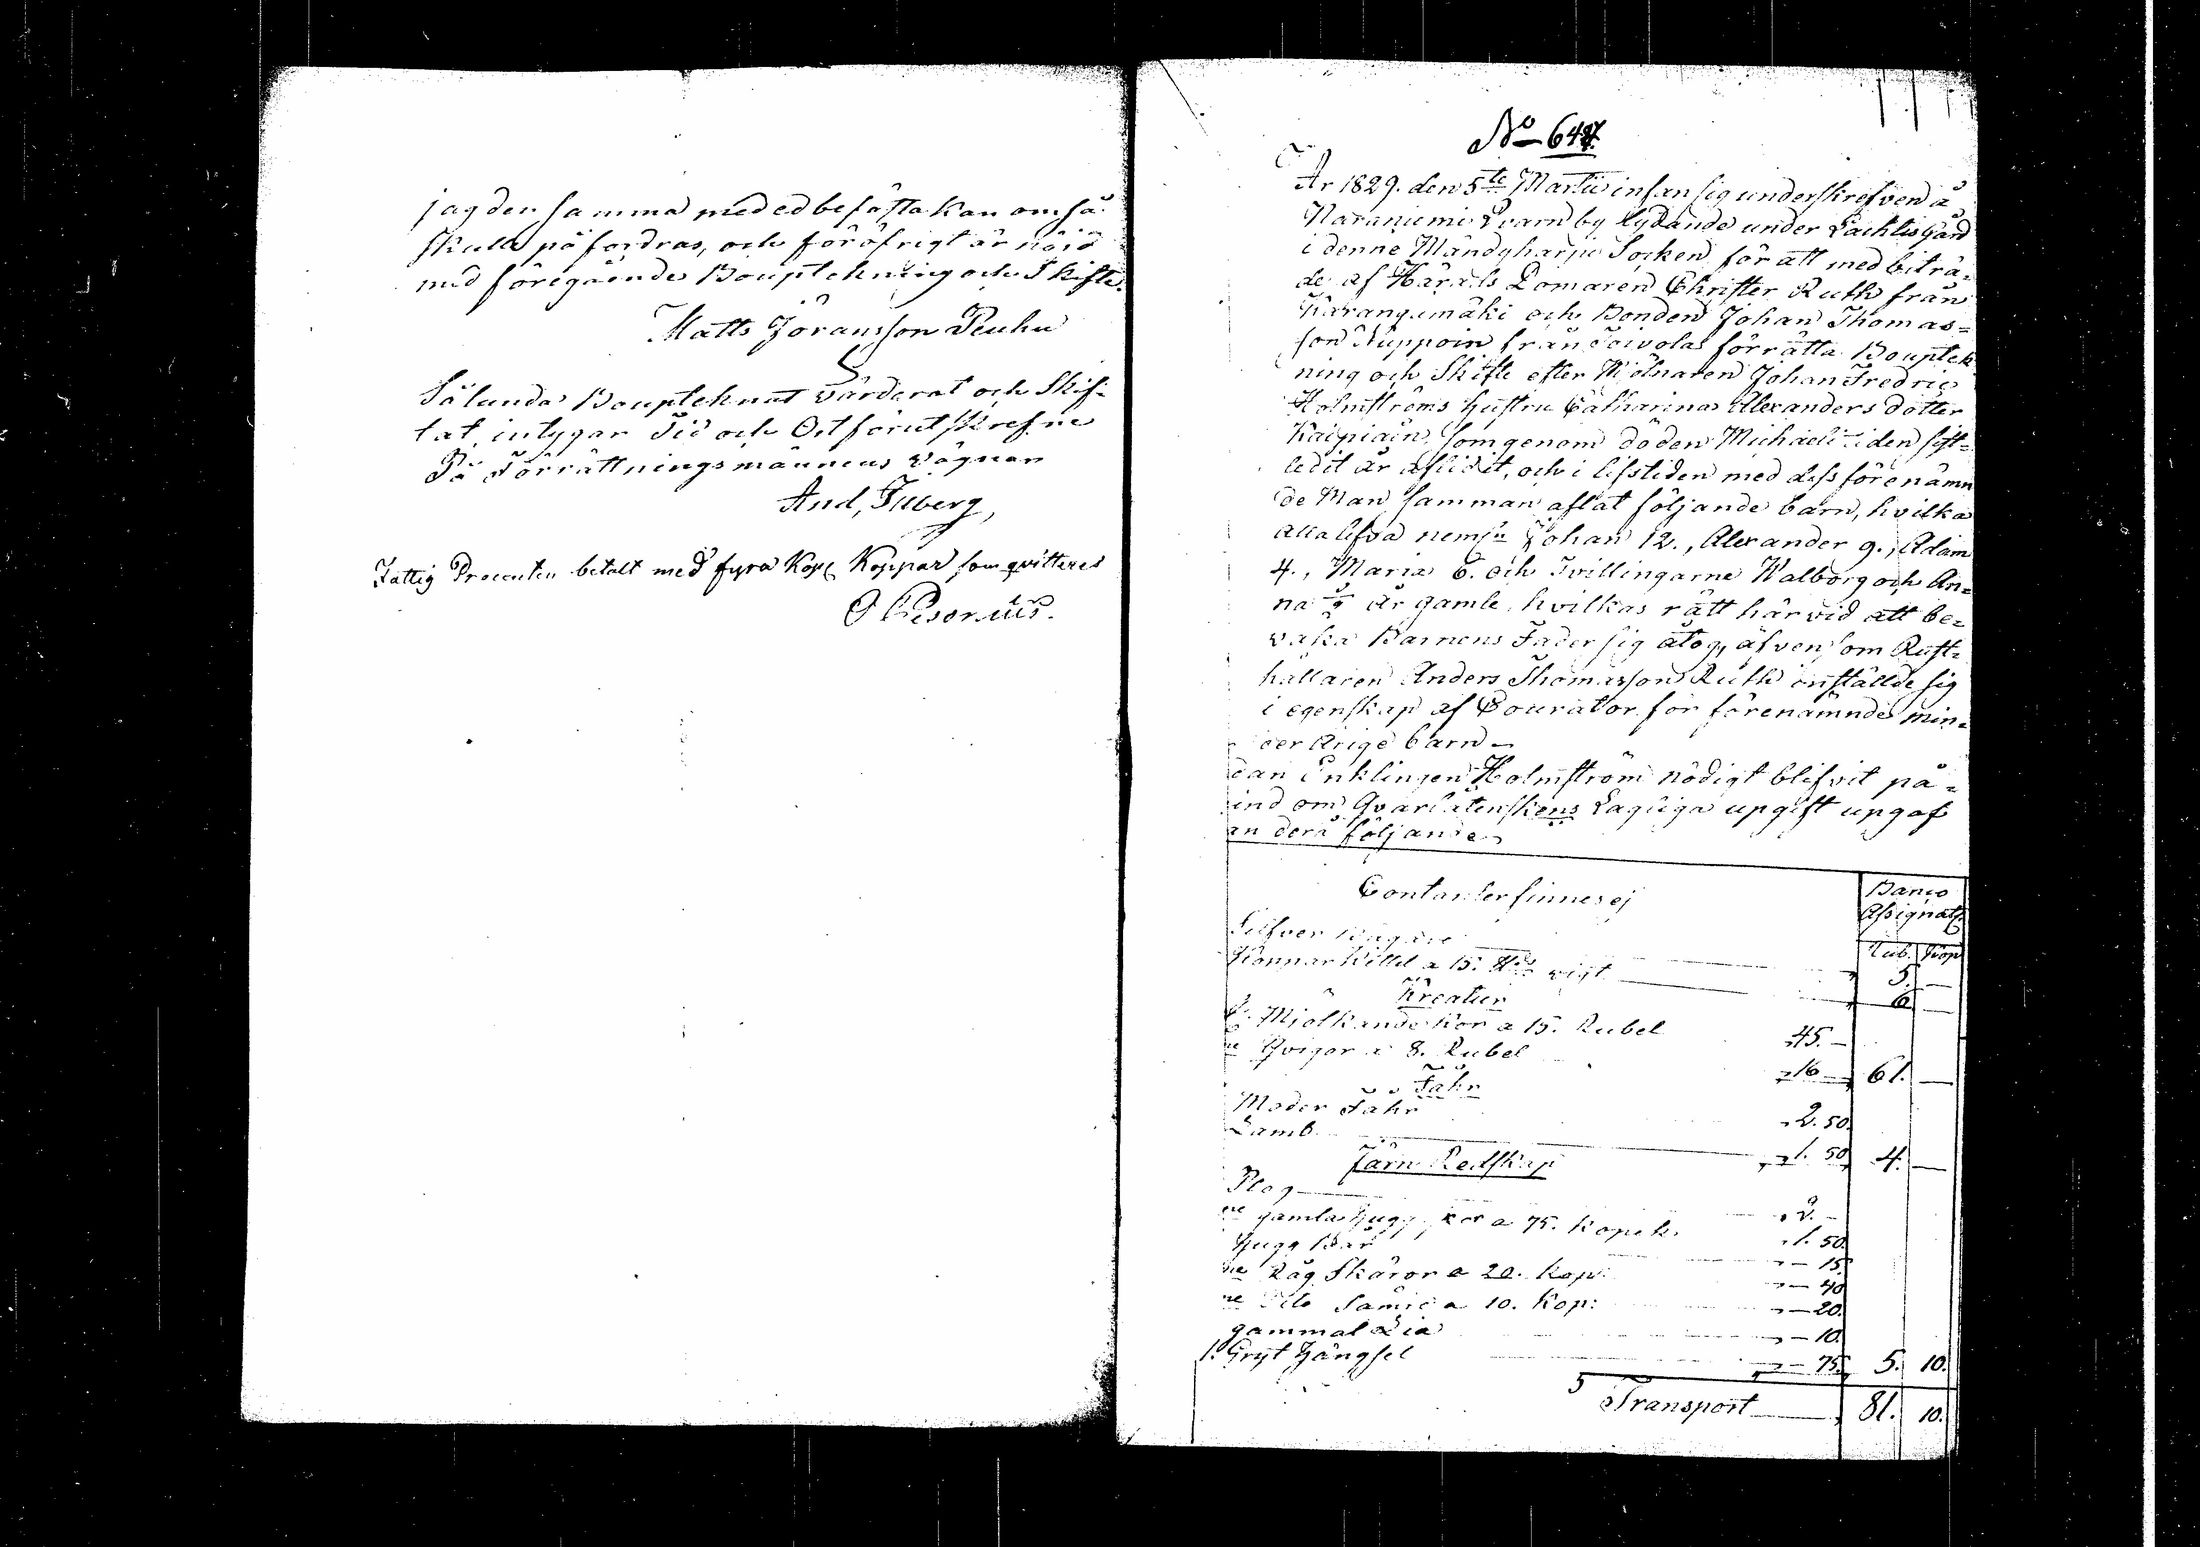 jag den samma med ed befästa kan om så
skulle på fordras, och föröfrigt är nöjd
med föregående Bouptekning och Skifte.
Matts Jöransson Peuhu
Sålunda Boupteknat värderat och Skif-
tat, intygar Tid och Ort förutskrefne
På Förrättningsmännens vägnar
And, Filberg,
Fattig Procenten betalt med fyra Kop: Koppar som qvitteras
O Pesonius.
No 647.
År 1829. den 5te Martii infan sig underskrefven å
Naraniemi Qvarn by lydande under Lachtis Gård
i denne Mändyharju Socken för att med biträ-
de af Härads Domaren Christer Ruth från
Karangimäki och Bonden Johan Thomas-
son Nuppoin från Toivola förrätta Bouptek-
ning och Skifte efter Mölnaren Johan Fredric
Holmströms hustru Catharina Alexanders dotter
Kaipiain, som genom döden Michaeli tiden sist-
ledit år aflidit, och i lifstiden med dess förenämn
de Man samman aflat följande barn, hvilka
alla lefva nemln Johan 12., Alexander 9., Adam
4., Maria 6. och Tvillingarne Walborg och An-
na år gamle, hvilkas rätt härvid att be-
vaka Barnens Fader sig åtog, äfven som Rust-
hållaren Anders Thomasson Ruth inställde sig
i egenskap af Courator för förenämnde min-
derårige barn
dan Enklingen Holmström nödigt blifvit på-
ind om Qvarlåtenskens Lagliga upgift upgaf
an derå följande
Contanter finnes ej
Banco
Assignats:
Rub. Kop
Silfver Bägare 5. —
Koppar Kittel a 15. vigt 6 —
Kreatur
Mjölkande Kor a 15. Rubel 45. —
Qvigor a 8. Rubel 16 — 61. —
Fåhr
Moder Fåhr 2. 50.
Lamb 1. 50 4. —
Järn Redskap
Plog 2. —
gamla hugg yxor a 75. Kopek. 1. 50.
Hugg Bår — 15.
Råg Skäror a 20. Kop: — 40
Dito sämre a 10. Kop: — 20.
gammal Lia — 10.
1. Gryt hängsel — 75. 5. 10.
Transport 81. 10.